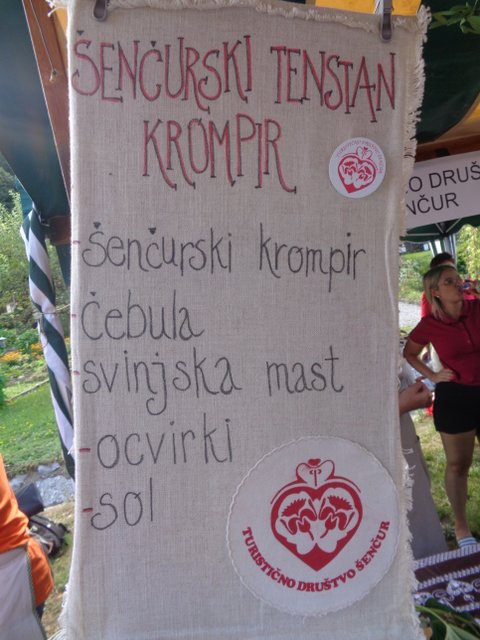 ŠENČURSKI TENSTAN
KROMPIR
- šenčurski krompir
- čebula
- svinjska mast
- ocvirki
- sol
TURISTIČNO DRUŠTVO ŠENČUR
O DRUŠ
NČUR